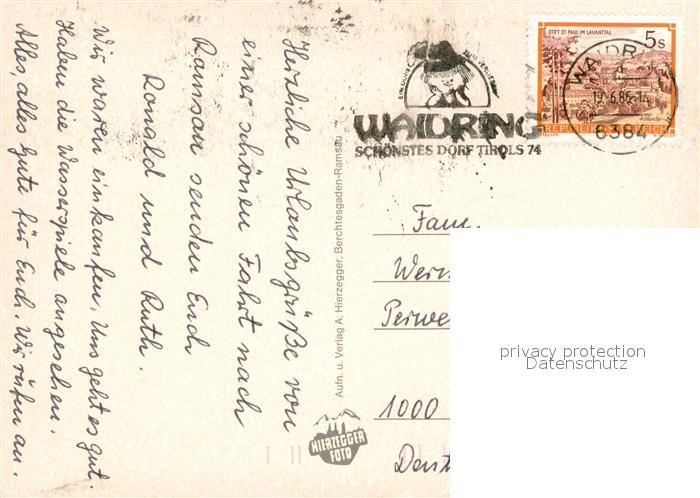 Herzliche Urlaubsgrüße von
einer schönen Fahrt nach
Ramsau senden Euch
Ronald und Ruth.
Wir waren einkaufen. Uns geht es gut.
Haben die Wasserspiele angesehen.
Alles, alles Gute für Euch. Wir rufen an.
Aufn. u. Verlag A. Hierzegger, Berchtesgaden-Ramsau
HIERZEGGER
FOTO
WAIDRING
SCHÖNSTES DORF TIROLS 74
STIFT ST. PAUL IM LAVANTTAL
5s
REPUBLIK ÖSTERREICH
WAIDRING
19.6.86-14
6384
Fam.
Wern
Perwe
1000
Deut
privacy protection
Datenschutz